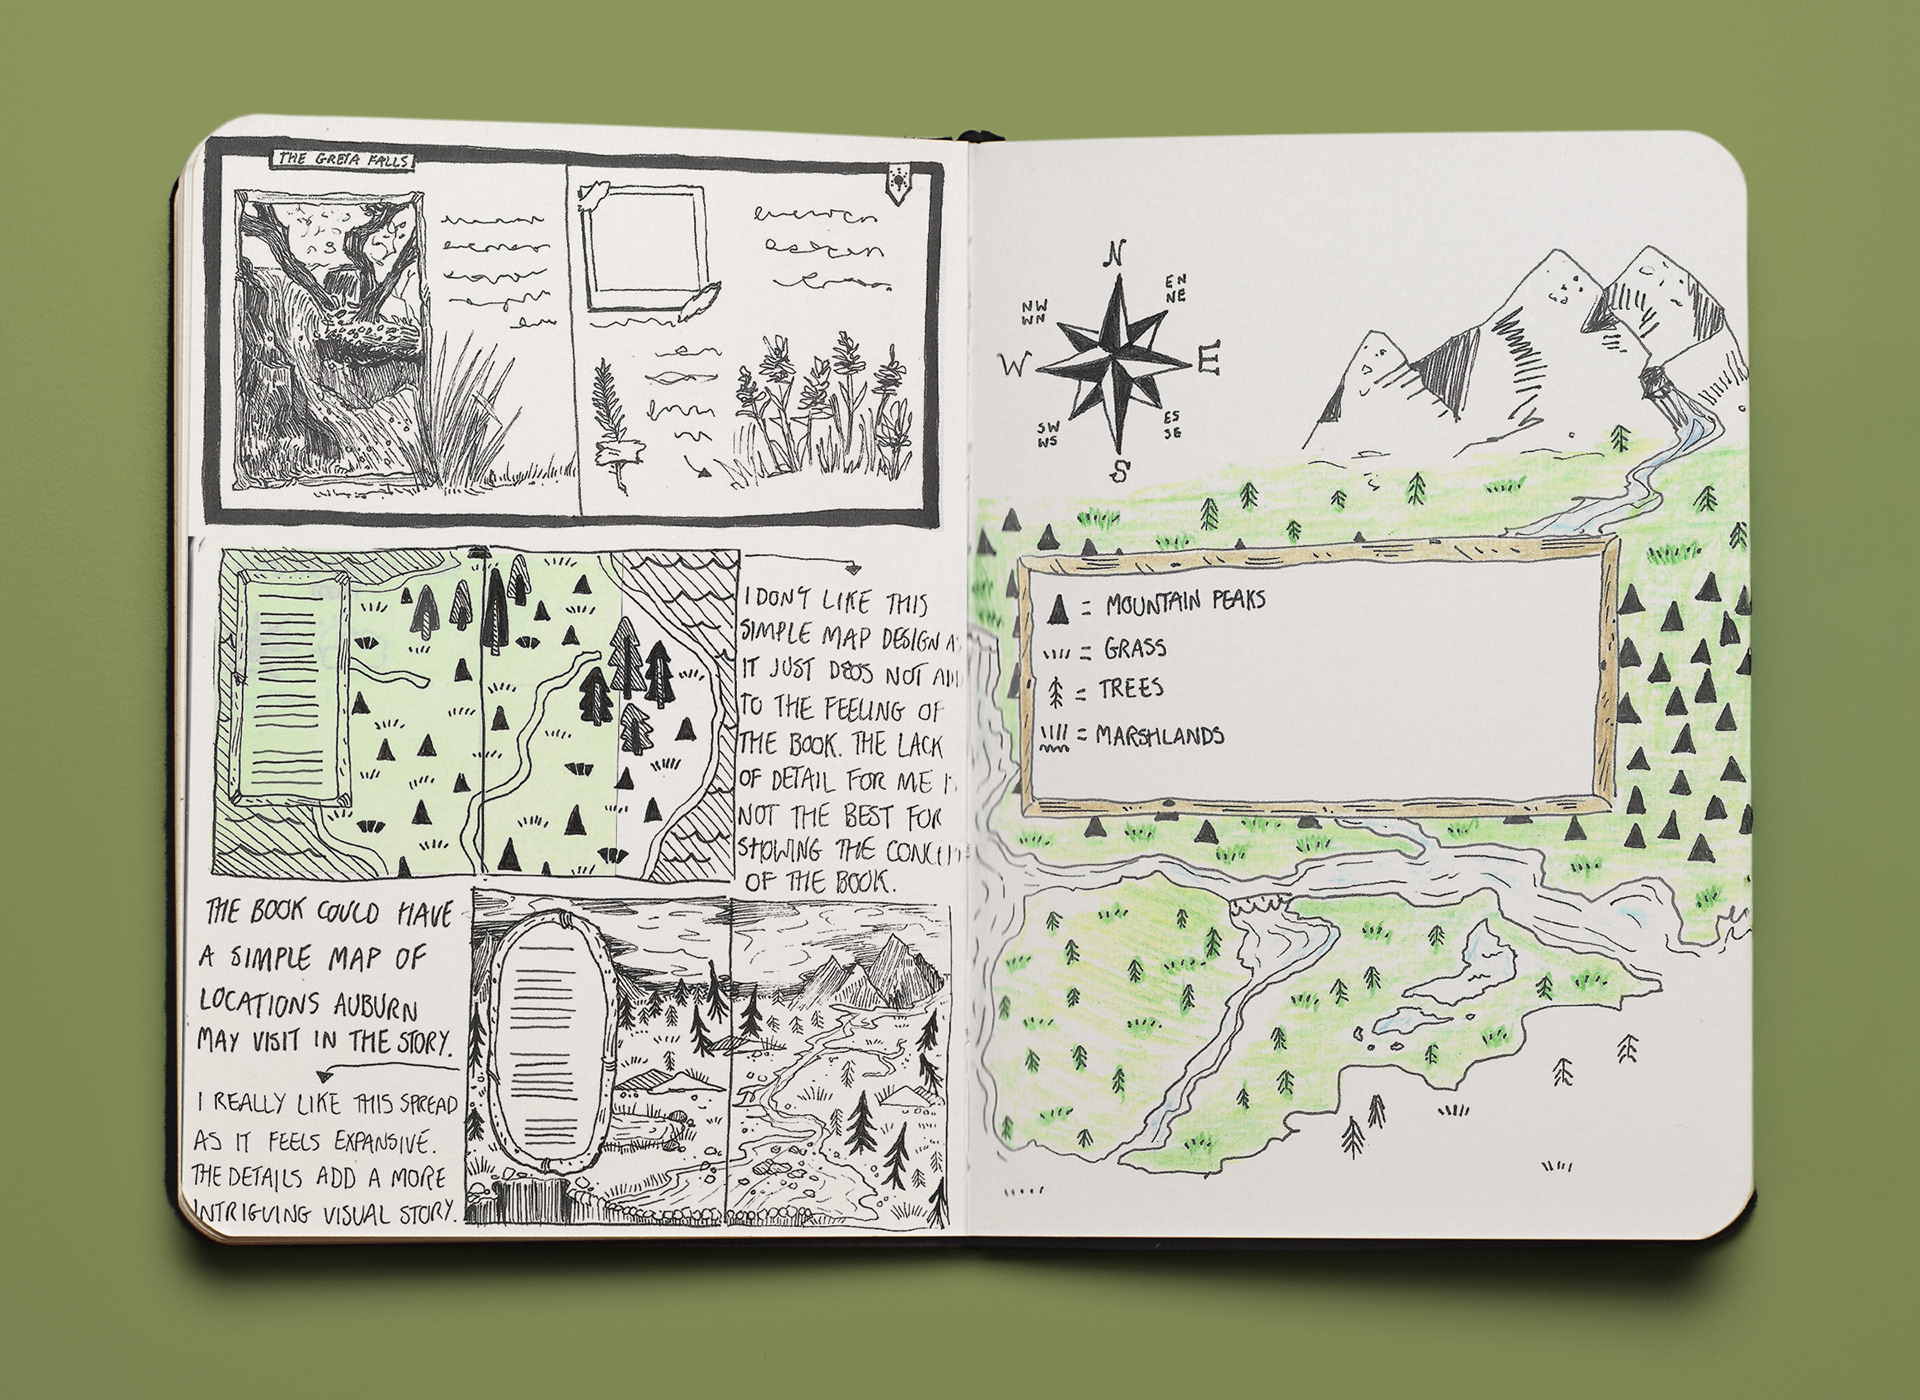 THE GRETA FALLS
I DON'T LIKE THIS
SIMPLE MAP DESIGN
IT JUST DEOS NOT
TO THE FEELING OF
THE BOOK. THE LACK
OF DETAIL FOR ME
NOT THE BEST FOR
SHOWING THE
OF THE BOOK.
THE BOOK COULD HAVE
A SIMPLE MAP OF
LOCATIONS AUBURN
MAY VISIT IN THE STORY.
I REALLY LIKE THIS SPREAD
AS IT FEELS EXPANSIVE.
THE DETAILS ADD A MORE
INTRIGUING VISUAL STORY.
N
NW
WN
EN
NE
W
E
SW
WS
ES
SE
S
= MOUNTAIN PEAKS
= GRASS
= TREES
= MARSHLANDS